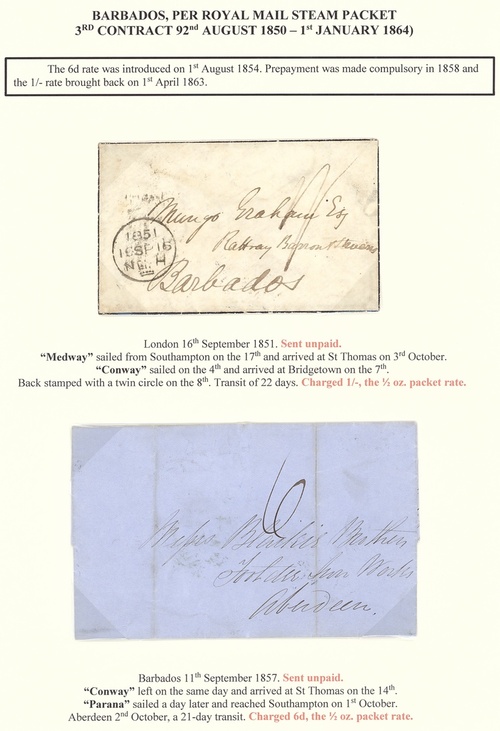 BARBADOS, PER ROYAL MAIL STEAM PACKET
3RD CONTRACT 92nd AUGUST 1850 – 1st JANUARY 1864)
The 6d rate was introduced on 1st August 1854. Prepayment was made compulsory in 1858 and
the 1/- rate brought back on 1st April 1863.
Mungo Graham Esq
Barbados
1851
16SP16
London 16th September 1851. Sent unpaid.
“Medway” sailed from Southampton on the 17th and arrived at St Thomas on 3rd October.
“Conway” sailed on the 4th and arrived at Bridgetown on the 7th.
Back stamped with a twin circle on the 8th. Transit of 22 days. Charged 1/-, the ½ oz. packet rate.
6
Messrs
Works
Aberdeen.
Barbados 11th September 1857. Sent unpaid.
“Conway” left on the same day and arrived at St Thomas on the 14th.
“Parana” sailed a day later and reached Southampton on 1st October.
Aberdeen 2nd October, a 21-day transit. Charged 6d, the ½ oz. packet rate.